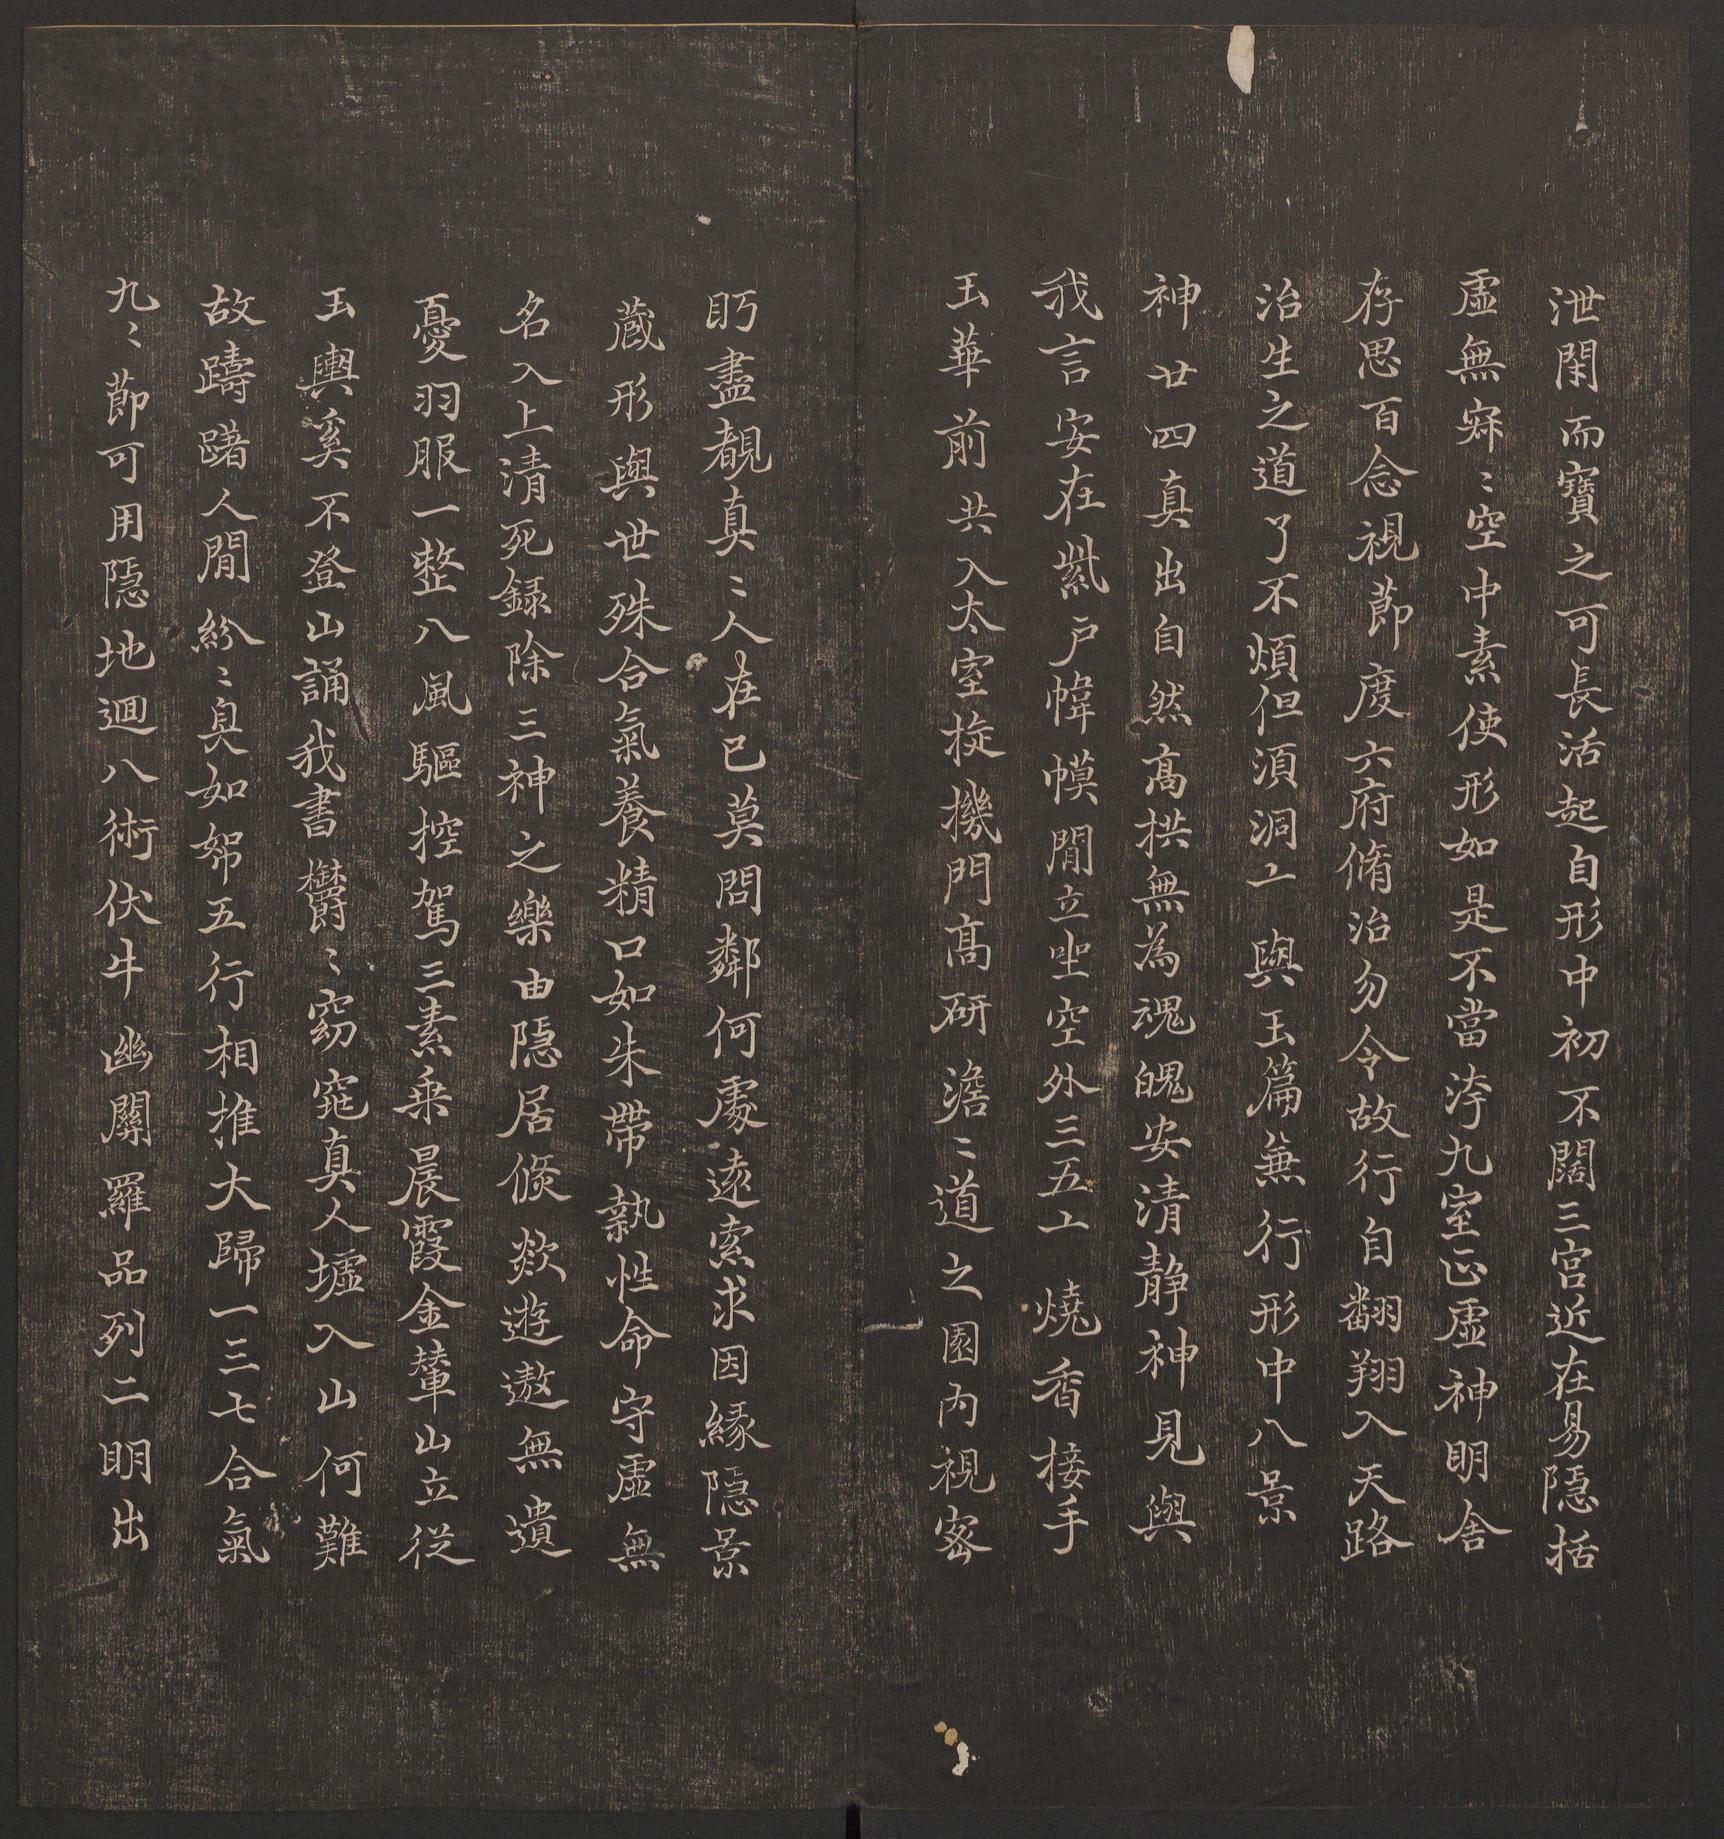 泄閑而寶之可長活起自形中初不闊三宮近在易隱括
虛無寂〻空中素使形如是不當汙九室正虛神明舍
存思百念視節度六府脩治勿令故行自翱翔入天路
治生之道了不煩但須洞亠與玉篇兼行形中八景
神廿四真出自然高拱無為魂魄安清静神見與
我言安在紫戶幃幙間立坐空外三五亠燒香接手
玉華前共入太室旋機門高研澹〻道之園內視密
眄盡覩真〻人在己莫問鄰何處遠索求因緣隱景
蔵形與世殊合氣養精口如朱帶執性命守虛無
名入上清死録除三神之樂由隱居倏欻遊遨無遺
憂羽服一整八風驅控駕三素乗晨霞金輦山立從
玉輿奚不登山誦我書欝〻窈窕真人墟入山何難
故躊躇人間紛〻臭如帤五行相推大歸一三七合氣
九〻節可用隱地迴八術伏牛幽闕羅品列二明出